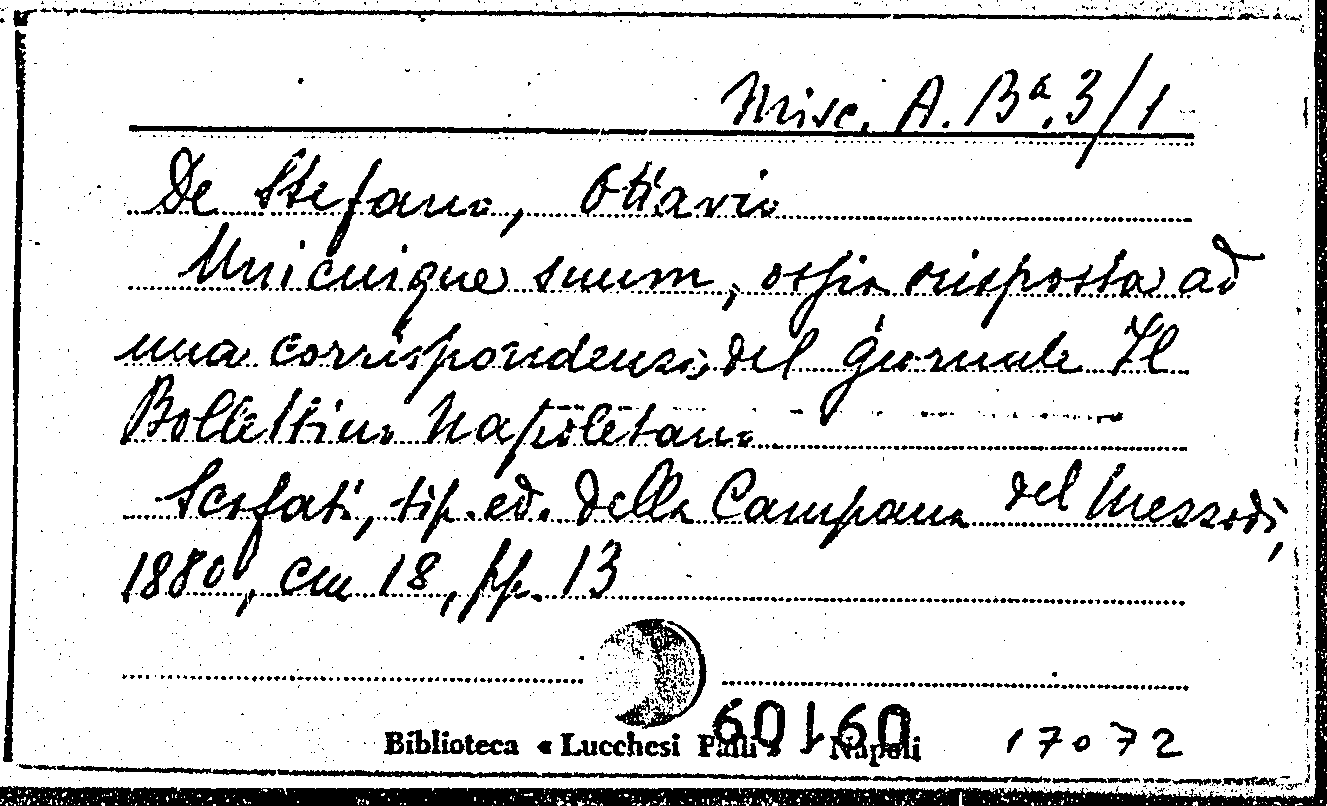 Misc. A. Bª. 3/1
De Stefano, Ottavio
Unicuique suum, ossia risposta ad
una corrispondenza del giornale Il
Bollettino Napoletano
Scafati, tip. ed. della Campana del Mezzodì,
1880, cm 18, pp. 13
60160
Biblioteca « Lucchesi Palli » Napoli 17072